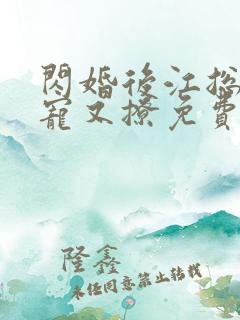 閃婚後江總
寵又撩免費
隆鑫
未經同意禁止轉載